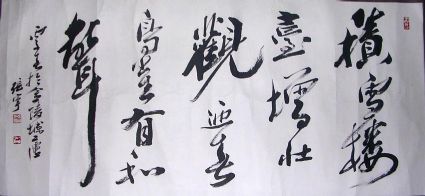 積雪樓
臺增壯
觀迎春
鳥雀有和
聲